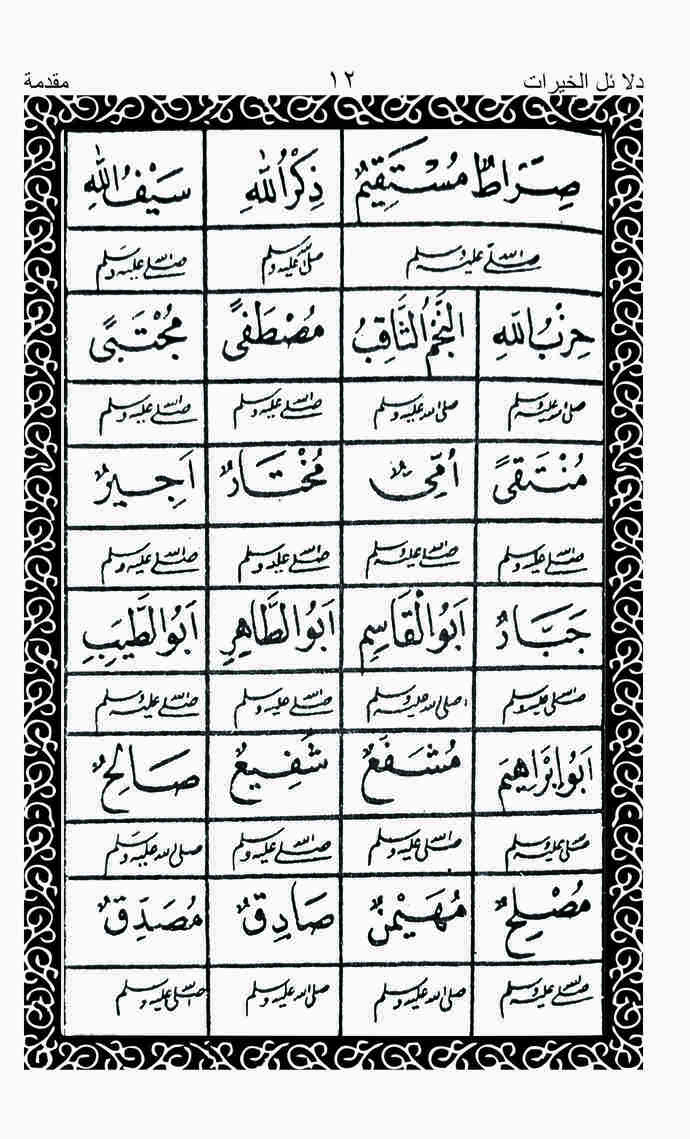 دلائل الخيرات ١٢ مقدمة
صِرَاطٌ مُسْتَقِيمٌ ذِكْرُ اللهِ سَيْفُ اللهِ
صلى الله عليه وسلم صلى الله عليه وسلم صلى الله عليه وسلم
حِزْبُ اللهِ النَّجْمُ الثَّاقِبُ مُصْطَفًى مُجْتَبًى
صلى الله عليه وسلم صلى الله عليه وسلم صلى الله عليه وسلم صلى الله عليه وسلم
مُنْتَقًى أُمِّيٌّ مُخْتَارٌ اَجِيرٌ
صلى الله عليه وسلم صلى الله عليه وسلم صلى الله عليه وسلم صلى الله عليه وسلم
جَبَّارٌ اَبُوالْقَاسِمِ اَبُوالطَّاهِرِ اَبُوالطَّيِّبِ
صلى الله عليه وسلم صلى الله عليه وسلم صلى الله عليه وسلم صلى الله عليه وسلم
اَبُوإِبْرَاهِيمَ مُشَفَّعٌ شَفِيعٌ صَالِحٌ
صلى الله عليه وسلم صلى الله عليه وسلم صلى الله عليه وسلم صلى الله عليه وسلم
مُصْلِحٌ مُهَيْمِنٌ صَادِقٌ مُصَدِّقٌ
صلى الله عليه وسلم صلى الله عليه وسلم صلى الله عليه وسلم صلى الله عليه وسلم